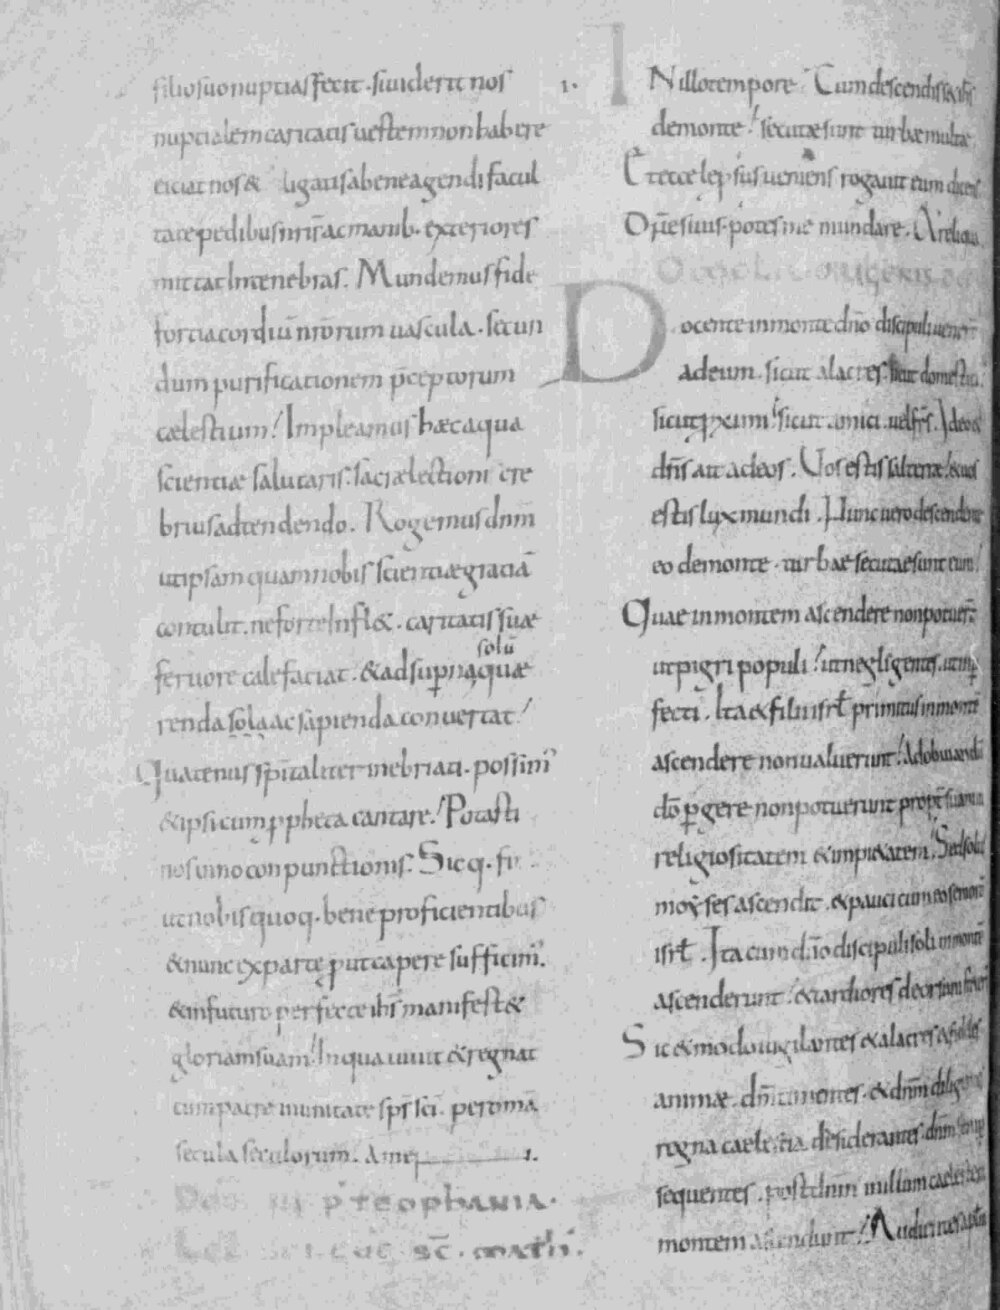 filio suo nuptias fecit. si uiderit nos
nuptialem caritatis uestem non habere
eiciat nos & ligatis a bene agendi facul
tate pedibus nr̅is ac manib. exteriores
mittat in tenebras. Mundemus fide
fortia cordiu̅ nr̅orum uascula. secun
dum purificationem p̅ceptorum
caelestium! Impleamus haec aqua
scientiae salutaris. sacrae lectioni cre
brius adtendendo. Rogemus dnm̅
ut ipsam quam nobis scientiae gratia̅
contulit. ne forte infl&. caritatis suae
solu̅
feruore calefaciat. & ad sup̅na quae
renda sola ac sapienda conuertat!
Quatenus sp̅italiter inebriati. possim᾽
& ipsi cum ꝓpheta cantare! Potasti
nos uino conpunctionis. Sicq.
ut nobis quoq. bene proficientibus
& nunc ex parte put capere sufficim᾽.
& in futuro perfecte ihs̅ manifest&
gloriam suam! In qua uiuit & regnat
cum patre in unitate sp̅s sc̅i. per om̅a
secula seculorum. Amen 1.
p᾽ teophania.
sc̅. math̅.
1. IN illo tempore Cum descendiss& ihs̅
de monte! secutae sunt turbae multae
Et ecce leprosus ueniens rogauit eum dicens
Dn̅e si uis. potes me mundare. & reliqua
Origenis
Docente in monte dn̅o discipuli uener̅
ad eum. sicut alacres. sicut domestici.
sicut ꝓximi! sicut amici. uel fr̅s. Ideo &
dn̅s ait ad eos. Uos estis sal terrae! & uos
estis lux mundi. Nunc uero descendente
eo de monte. turbae secutae sunt eum!
Quae in montem ascendere non potuer̅.
ut pigri populi! ut neglegentes. ut imp̅
fecti. Ita & filii isrl̅ primitus in monte̅
ascendere non ualuerunt! Ad obuiandu̅
do̅ p̅gere non potuerunt propt̅ suam
religiositatem & impi&atem. Sed solus
moyses ascendit. & pauci cum eo seniores
isrl̅. Ita cum dn̅o discipuli soli in monte̅
ascenderunt! & tardiores deorsum
Sic & modo uigilantes & alacres & fideles
animae. dn̅m timentes. & dn̅m diligentes
regna caelestia desiderantes. dn̅m semp̅
sequentes. post dn̅m in illum caelestem
montem ascendunt! Audientes